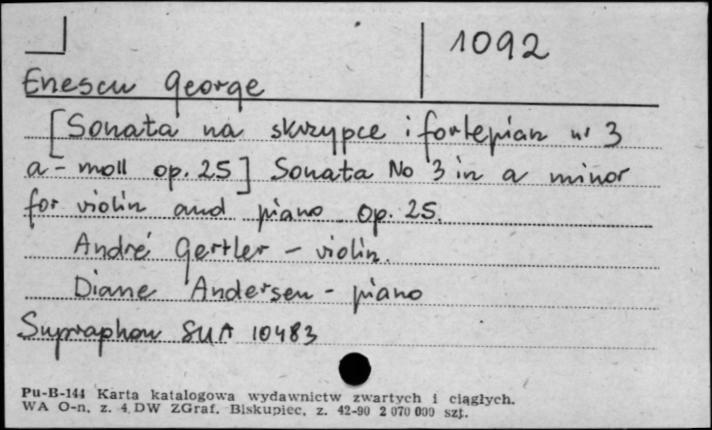 1092
Enescu George
[Sonata na skrzypce i fortepian nr 3
a-moll op. 25] Sonata No 3 in a minor
for violin and piano op. 25.
André Gertler - violin.
Diane Andersen - piano
Supraphon SUA 10483
Pu-B-144 Karta katalogowa wydawnictw zwartych i ciągłych.
WA O-n. z. 4 DW ZGraf. Biskupiec, z. 42-90 2 070 000 szt.